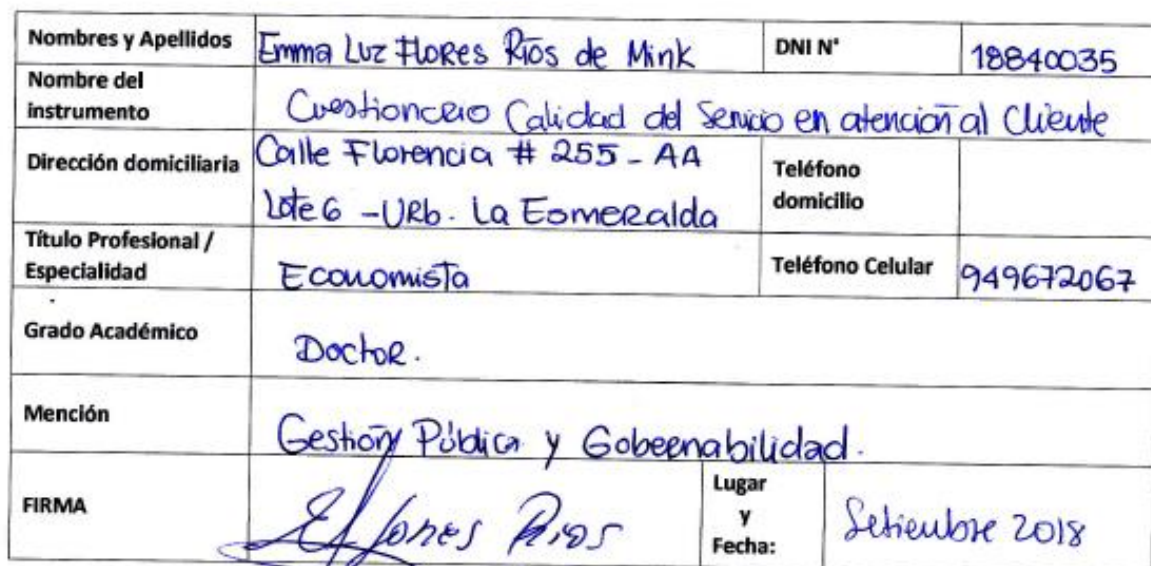 Nombres y Apellidos Emma Luz Flores Ríos de Mink DNI N° 18840035
Nombre del
instrumento Cuestionario Calidad del Servicio en atención al Cliente
Dirección domiciliaria Calle Florencia # 255 - AA
Lote 6 - URb. La Esmeralda
Teléfono
domicilio
Título Profesional /
Especialidad Economista Teléfono Celular 949672067
Grado Académico Doctor.
Mención Gestión Pública y Gobernabilidad.
FIRMA EFlores Rios
Lugar
y
Fecha: Setiembre 2018